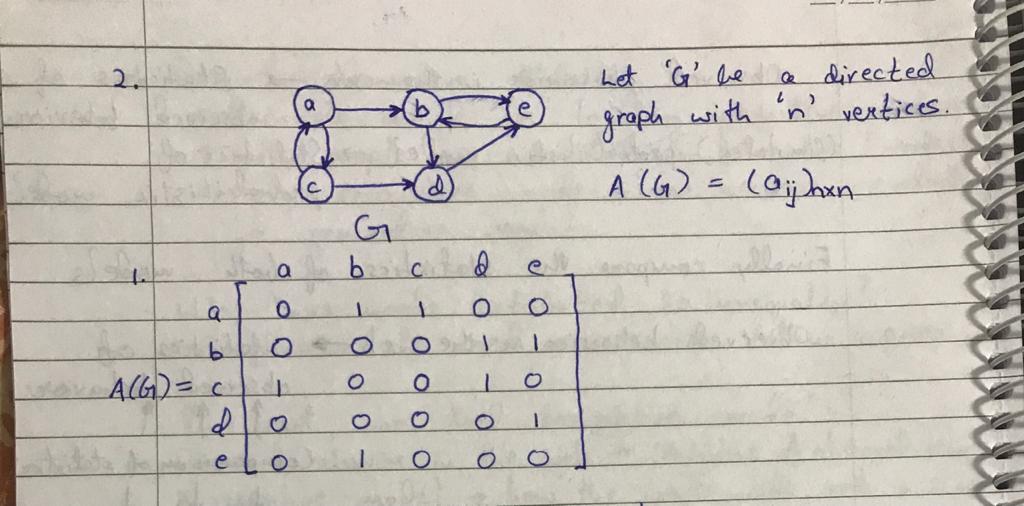 2.
a b e
c d
G
Let 'G' be a directed
graph with 'n' vertices.
A(G) = (aij)n×n
1.
a b c d e
a 0 1 1 0 0
b 0 0 0 1 1
A(G) = c 1 0 0 1 0
d 0 0 0 0 1
e 0 1 0 0 0